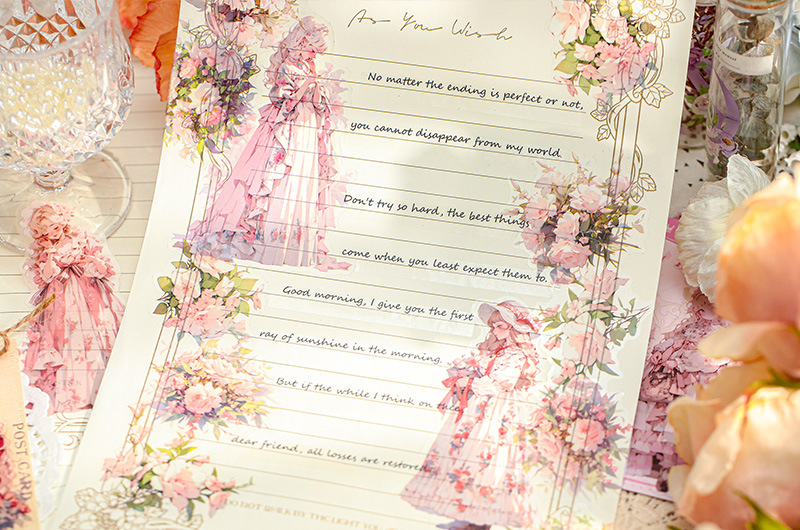 As You Wish
No matter the ending is perfect or not,
you cannot disappear from my world.
Don't try so hard, the best things
come when you least expect them to.
Good morning, I give you the first
ray of sunshine in the morning.
But if the while I think on thee,
dear friend, all losses are restored
POST CARD
DO NOT WALK BY THE LIGHT YOU